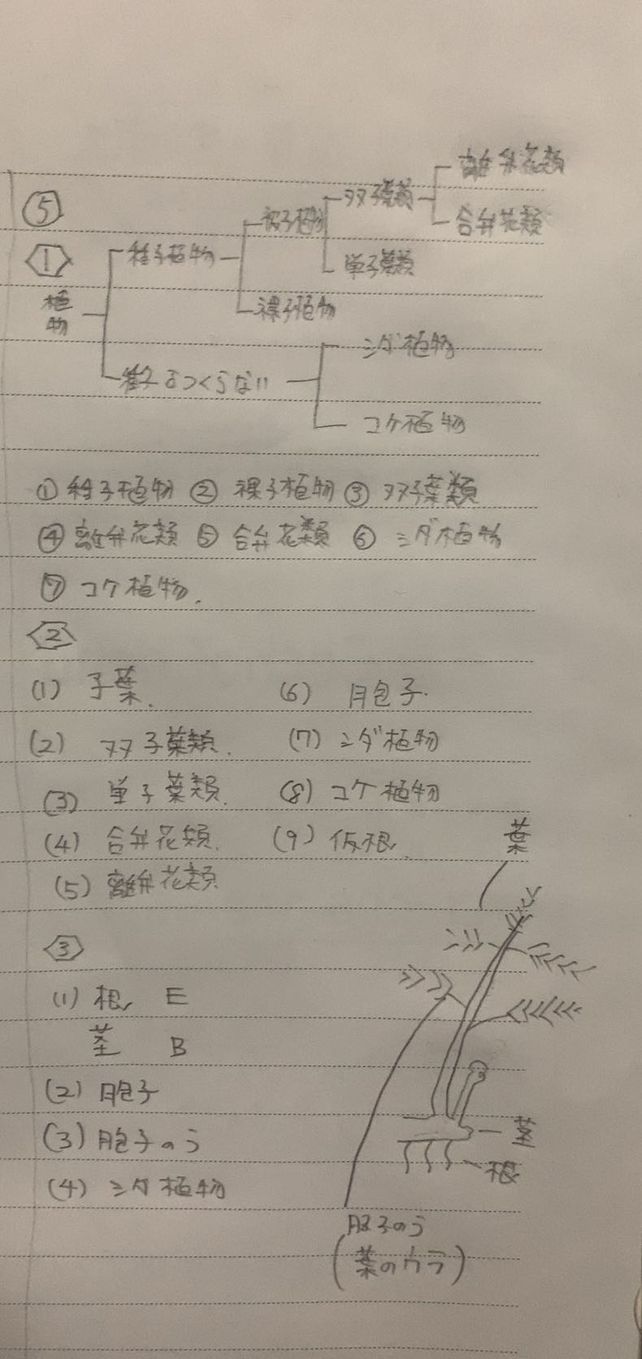 ⑤
離弁花類
双子葉類
合弁花類
被子植物
① 種子植物
単子葉類
植物
裸子植物
シダ植物
種子をつくらない
コケ植物
① 種子植物 ② 裸子植物 ③ 双子葉類
④ 離弁花類 ⑤ 合弁花類 ⑥ シダ植物
⑦ コケ植物.
②
(1) 子葉. (6) 胞子.
(2) 双子葉類. (7) シダ植物
(3) 単子葉類. (8) コケ植物
(4) 合弁花類. (9) 仮根.
葉
(5) 離弁花類
③
(1) 根 E
茎 B
(2) 胞子
(3) 胞子のう
(4) シダ植物
茎
根
胞子のう
(葉のウラ)